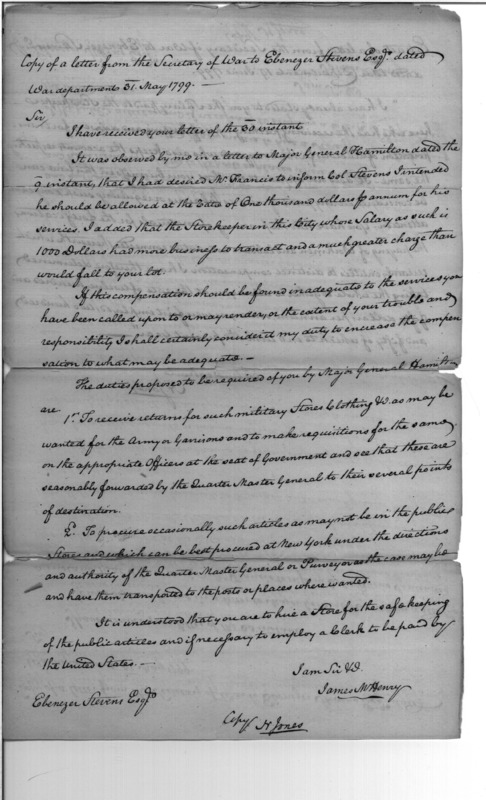 Copy of a letter from the Secretary of War to Ebenezer Stevens Esqr. dated
War department 31 May 1799. —
Sir,
I have received your letter of the 30 instant
It was observed by me in a letter to Major General Hamilton dated the
9 instant, that I had desired Mr. Francis to inform Col Stevens I intended
he should be allowed at the Rate of One thousand dollars ⅌ annum for his
services. I added that the Store keeper in this City whose Salary as such is
1000 Dollars had more business to transact and a much greater charge than
would fall to your lot.
If this compensation should be found inadequate to the services you
have been called upon to or may render, or the extent of your trouble and
responsibility I shall certainly consider it my duty to encrease the compen
sation to what may be adequate. —
The duties proposed to be required of you by Major General Hamilton
are
1st. To receive returns for such military Stores Clothing &c. as may be
wanted for the Army or Garrisons and to make requisitions for the same
on the appropriate Officers at the seat of Government and see that these are
seasonably forwarded by the Quarter Master General to their several points
of destination.
2. To procure occasionally such articles as may not be in the public
Stores and which can be best procured at New York under the directions
and authority of the Quarter Master General or Purveyor as the case may be
and have them transported to the posts or places where wanted.
It is understood that you are to hire a Store for the safe keeping
of the public articles and if necessary to employ a Clerk to be paid by
the United States. —
I am Sir &c.
James McHenry
Ebenezer Stevens Esqr.
Copy
H Jones